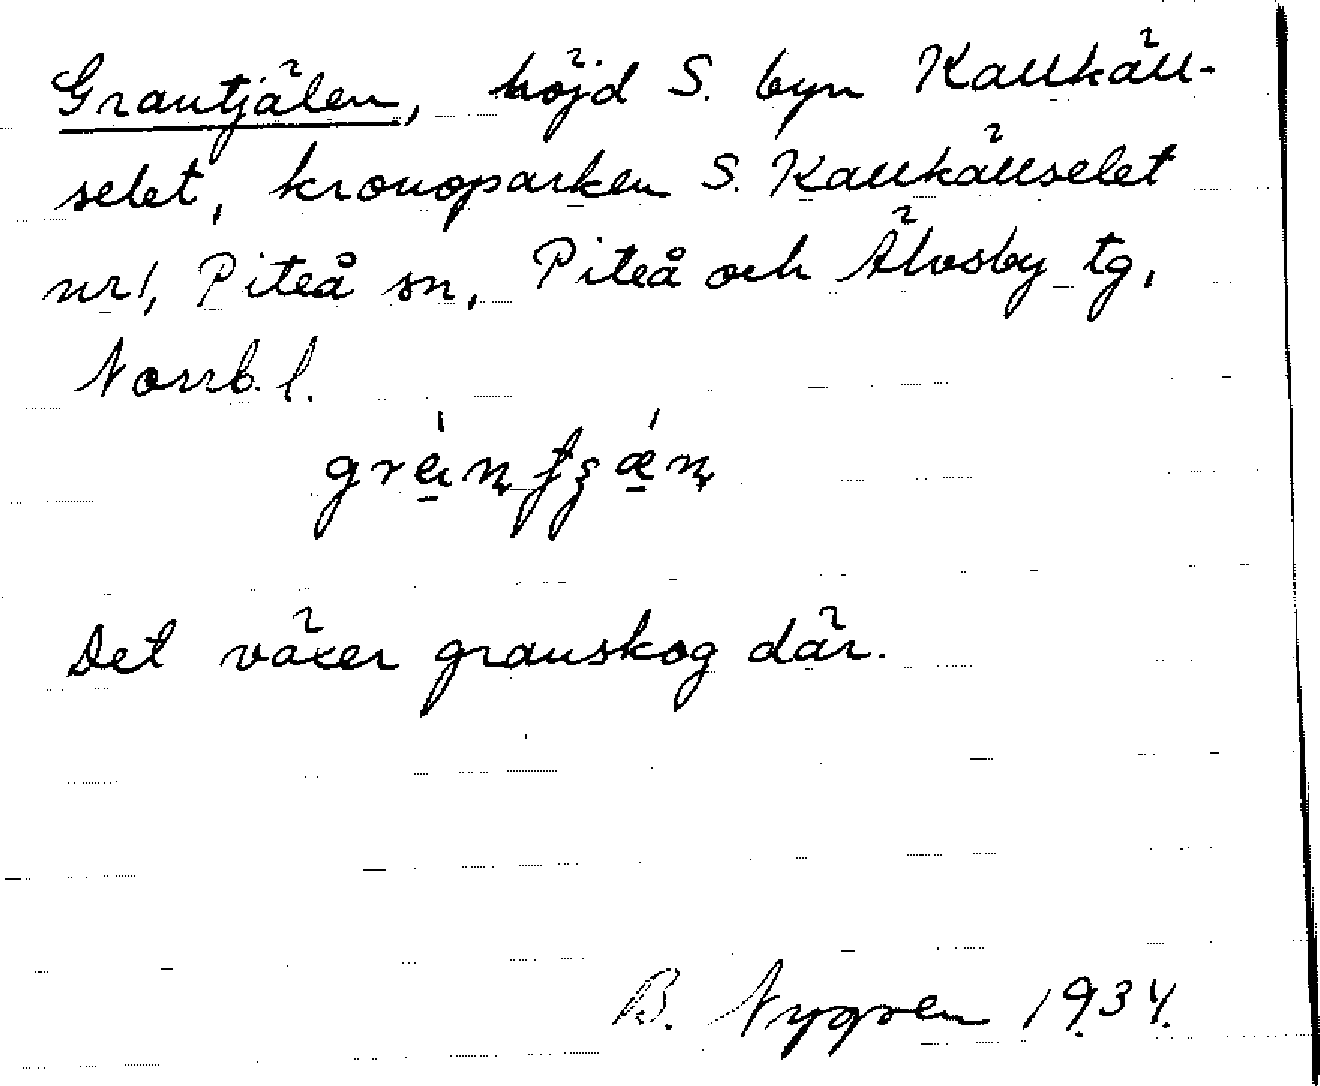 Grantjälen, höjd S. byn Kallkäll-
selet, kronoparken S. Kallkällselet
nr 1, Piteå sn, Piteå och Älvsby tg,
Norrb. l.
Det växer granskog där.
B. Nygren 1934.